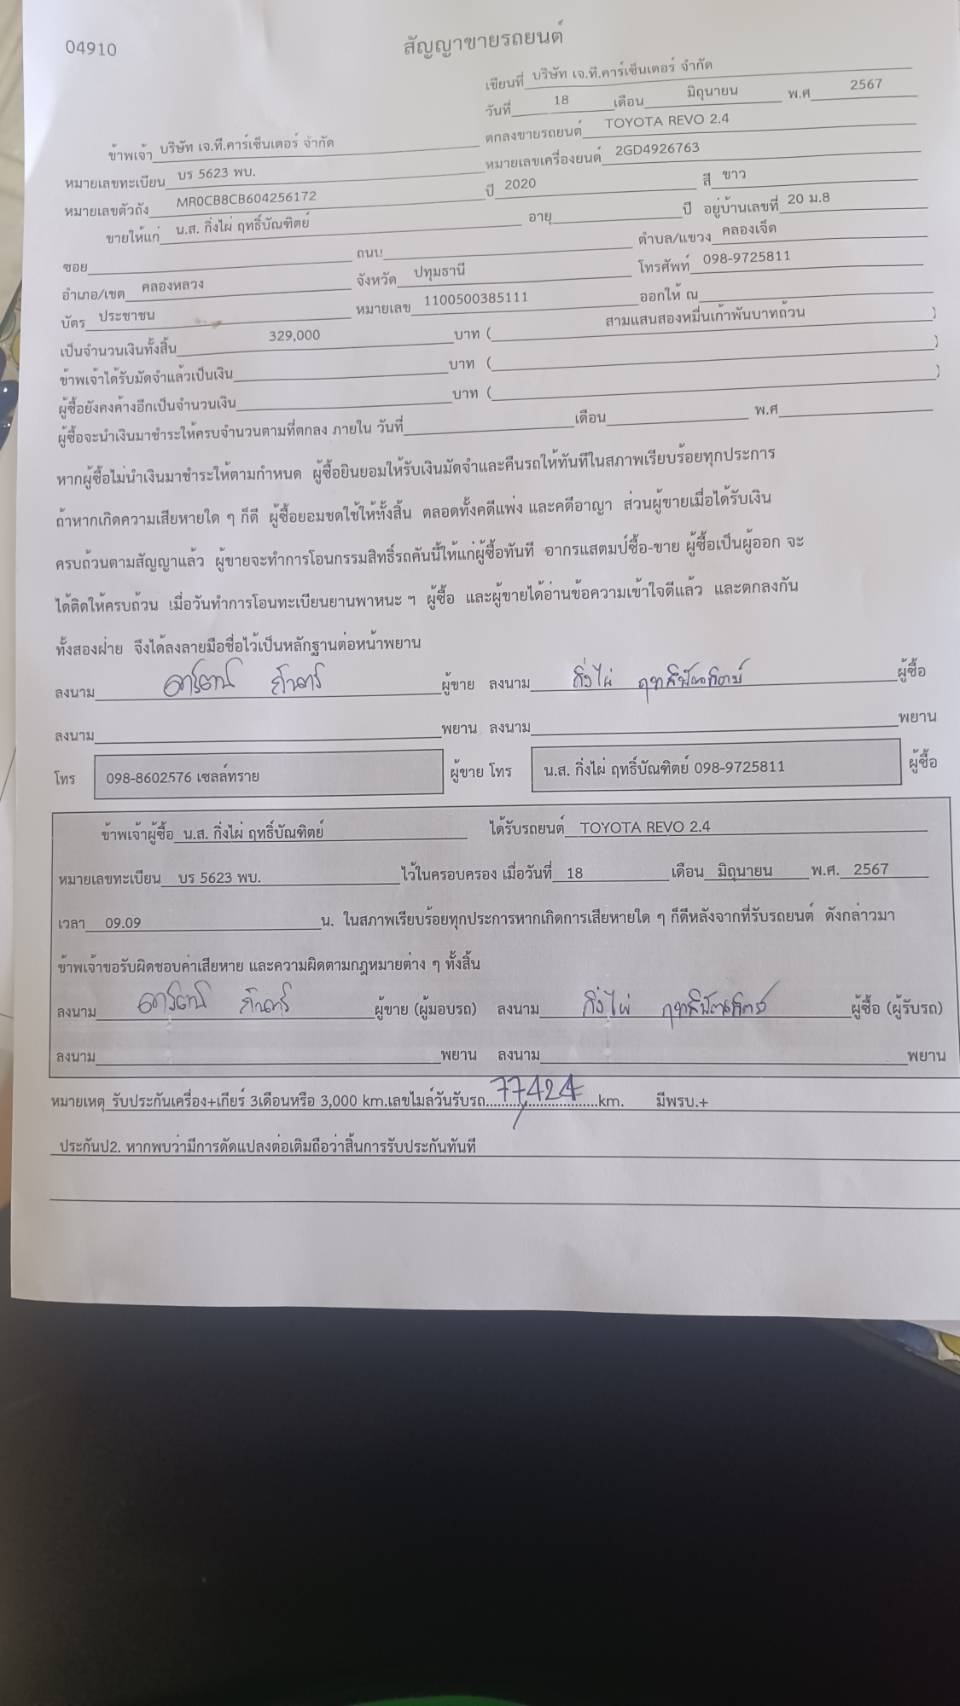 04910
สัญญาขายรถยนต์
เขียนที่ บริษัท เจ.ที.คาร์เซ็นเตอร์ จำกัด
วันที่ 18 เดือน มิถุนายน พ.ศ 2567
ข้าพเจ้า บริษัท เจ.ที.คาร์เซ็นเตอร์ จำกัด ตกลงขายรถยนต์ TOYOTA REVO 2.4
หมายเลขทะเบียน บร 5623 พบ. หมายเลขเครื่องยนต์ 2GD4926763
หมายเลขตัวถัง MR0CB8CB604256172 ปี 2020 สี ขาว
ขายให้แก่ น.ส. กิ่งไผ่ ฤทธิ์บัณฑิตย์ อายุ ปี อยู่บ้านเลขที่ 20 ม.8
ซอย ถนน ตำบล/แขวง คลองเจ็ด
อำเภอ/เขต คลองหลวง จังหวัด ปทุมธานี โทรศัพท์ 098-9725811
บัตร ประชาชน หมายเลข 1100500385111 ออกให้ ณ
เป็นจำนวนเงินทั้งสิ้น 329,000 บาท ( สามแสนสองหมื่นเก้าพันบาทถ้วน )
ข้าพเจ้าได้รับมัดจำแล้วเป็นเงิน บาท ( )
ผู้ซื้อยังคงค้างอีกเป็นจำนวนเงิน บาท ( )
ผู้ซื้อจะนำเงินมาชำระให้ครบจำนวนตามที่ตกลง ภายใน วันที่ เดือน พ.ศ
หากผู้ซื้อไม่นำเงินมาชำระให้ตามกำหนด ผู้ซื้อยินยอมให้รับเงินมัดจำและคืนรถให้ทันทีในสภาพเรียบร้อยทุกประการ
ถ้าหากเกิดความเสียหายใด ๆ ก็ดี ผู้ซื้อยอมชดใช้ให้ทั้งสิ้น ตลอดทั้งคดีแพ่ง และคดีอาญา ส่วนผู้ขายเมื่อได้รับเงิน
ครบถ้วนตามสัญญาแล้ว ผู้ขายจะทำการโอนกรรมสิทธิ์รถคันนี้ให้แก่ผู้ซื้อทันที อากรแสตมป์ซื้อ-ขาย ผู้ซื้อเป็นผู้ออก จะ
ได้ติดให้ครบถ้วน เมื่อวันทำการโอนทะเบียนยานพาหนะ ฯ ผู้ซื้อ และผู้ขายได้อ่านข้อความเข้าใจดีแล้ว และตกลงกัน
ทั้งสองฝ่าย จึงได้ลงลายมือชื่อไว้เป็นหลักฐานต่อหน้าพยาน
ลงนาม ผู้ขาย ลงนาม กิ่งไผ่ ฤทธิ์บัณฑิตย์ ผู้ซื้อ
ลงนาม พยาน ลงนาม พยาน
โทร 098-8602576 เซลล์ทราย ผู้ขาย โทร น.ส. กิ่งไผ่ ฤทธิ์บัณฑิตย์ 098-9725811 ผู้ซื้อ
ข้าพเจ้าผู้ซื้อ น.ส. กิ่งไผ่ ฤทธิ์บัณฑิตย์ ได้รับรถยนต์ TOYOTA REVO 2.4
หมายเลขทะเบียน บร 5623 พบ. ไว้ในครอบครอง เมื่อวันที่ 18 เดือน มิถุนายน พ.ศ. 2567
เวลา 09.09 น. ในสภาพเรียบร้อยทุกประการหากเกิดการเสียหายใด ๆ ก็ดีหลังจากที่รับรถยนต์ ดังกล่าวมา
ข้าพเจ้าขอรับผิดชอบค่าเสียหาย และความผิดตามกฎหมายต่าง ๆ ทั้งสิ้น
ลงนาม ผู้ขาย (ผู้มอบรถ) ลงนาม กิ่งไผ่ ฤทธิ์บัณฑิตย์ ผู้ซื้อ (ผู้รับรถ)
ลงนาม พยาน ลงนาม พยาน
หมายเหตุ รับประกันเครื่อง+เกียร์ 3เดือนหรือ 3,000 km.เลขไมล์วันรับรถ 77,424 km. มีพรบ.+
ประกันป2. หากพบว่ามีการดัดแปลงต่อเติมถือว่าสิ้นการรับประกันทันที